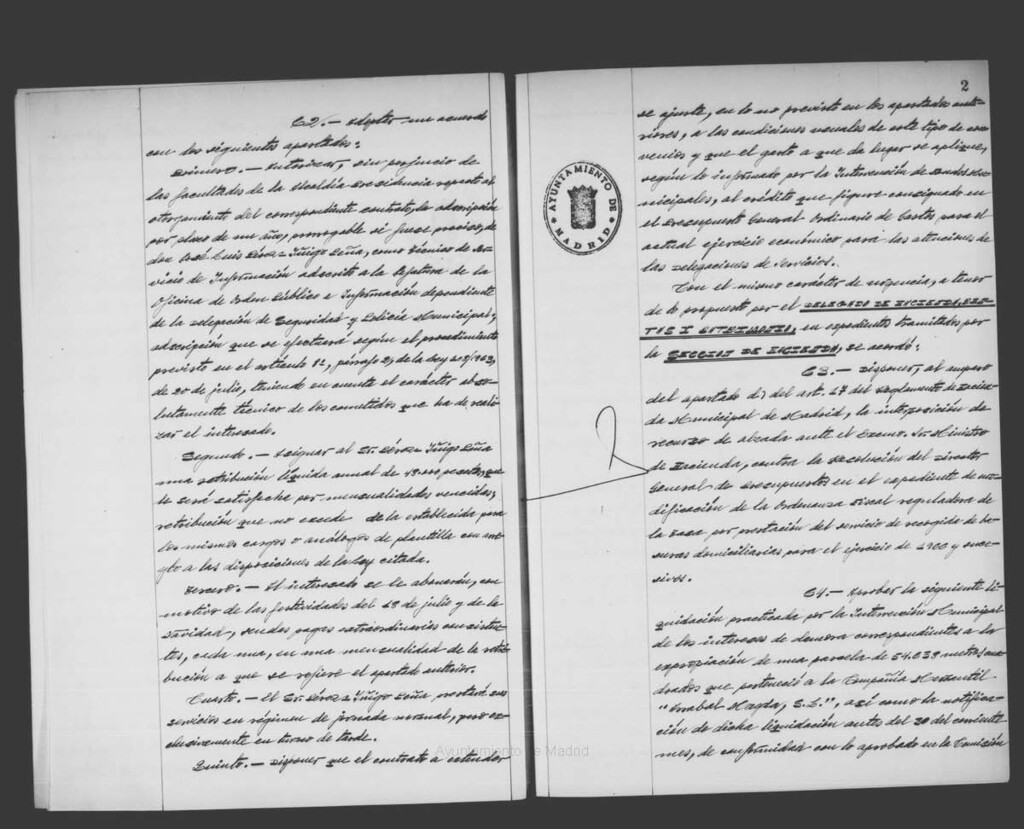 62.— Adoptar un acuerdo
con los siguientes apartados:
Primero.— Autorizar, sin perjuicio de
las facultades de la Alcaldía Presidencia respecto al
otorgamiento del correspondiente contrato, la adscripción
por plazo de un año, prorrogable si fuese preciso, de
don José Luis Pérez Iñigo Peña, como Técnico de Ser-
vicio de Información adscrito a la Jefatura de la
Oficina de Orden Público e Información dependiente
de la Delegación de Seguridad y Policía Municipal,
adscripción que se efectuará según el procedimiento
previsto en el artículo 8º, párrafo 2), de la Ley
de 20 de julio, teniendo en cuenta el carácter abso-
lutamente técnico de los cometidos que ha de reali-
zar el interesado.
Segundo.— Asignar al Sr. Pérez Iñigo Peña
una retribución líquida anual de pesetas, que
le será satisfecha por mensualidades vencidas,
retribución que no excede de la establecida para
los mismos cargos o análogos de plantilla con arre-
glo a las disposiciones de la Ley citada.
Tercero.— Al interesado se le abonarán, con
motivo de las festividades del 18 de julio y de la
Navidad, sendas pagas extraordinarias consisten-
tes, cada una, en una mensualidad de la retri-
bución a que se refiere el apartado anterior.
Cuarto.— El Sr. Pérez Iñigo Peña, prestará sus
servicios en régimen de jornada normal, pero ex-
clusivamente en turno de tarde.
Quinto.— Disponer que el contrato a extender
Ayuntamiento de Madrid
2
AYUNTAMIENTO DE
MADRID
se ajuste, en lo no previsto en los apartados ante-
riores, a las condiciones usuales de este tipo de con-
venios y que el gasto a que da lugar se aplique,
según lo informado por la Intervención de Fondos Mu-
nicipales, al crédito que figure consignado en
el Presupuesto General Ordinario de Gastos para el
actual ejercicio económico para las atenciones de
las Delegaciones de Servicios.
Con el mismo carácter de urgencia, a tenor
de lo propuesto por el DELEGADO DE HACIENDA, REN-
TAS Y PATRIMONIO, en expedientes tramitados por
la SECCION DE HACIENDA, se acordó:
63.— Disponer, al amparo
del apartado d) del art. 27 del Reglamento de Hacien-
da Municipal de Madrid, la interposición de
recurso de alzada ante el Excmo. Sr. Ministro
de Hacienda, contra la Resolución del Director
General de Presupuestos en el expediente de mo-
dificación de la Ordenanza Fiscal reguladora de
la tasa por prestación del servicio de recogida de ba-
suras domiciliarias para el ejercicio de y suce-
sivos.
64.— Aprobar la siguiente li-
quidación practicada por la Intervención Municipal
de los intereses de demora correspondientes a la
expropiación de una parcela de metros cua-
drados que perteneció a la Compañía Mercantil
"Arrabal Magda, S.L.", así como la notifica-
ción de dicha liquidación antes del 20 del corriente
mes, de conformidad con lo aprobado en la Comisión